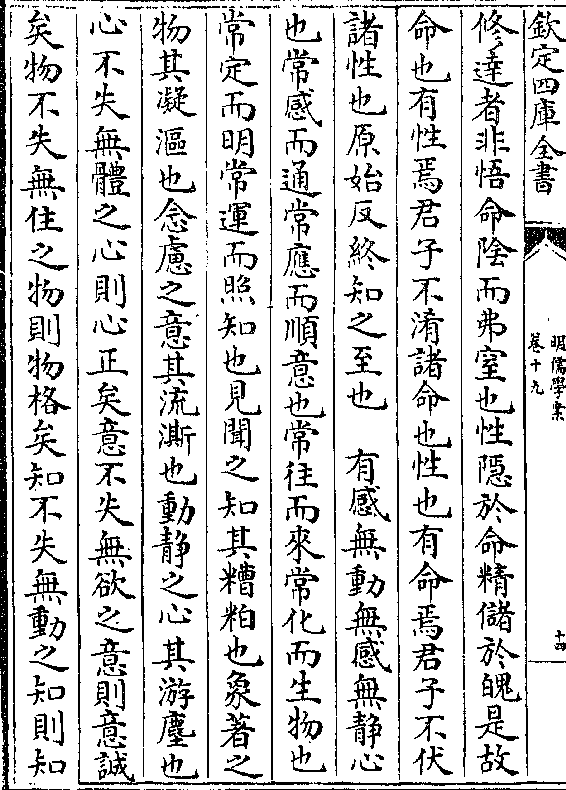 欽定四庫全書
明儒學案
卷十九
十四
修達者非悟命陰而弗窒也性隱於命精儲於魄是故
命也有性焉君子不淆諸命也性也有命焉君子不伏
諸性也原始反終知之至也　有感無動無感無静心
也常感而通常應而順意也常往而來常化而生物也
常定而明常運而照知也見聞之知其糟粕也象著之
物其凝漚也念慮之意其流澌也動静之心其游塵也
心不失無體之心則心正矣意不失無欲之意則意誠
矣物不失無住之物則物格矣知不失無動之知則知